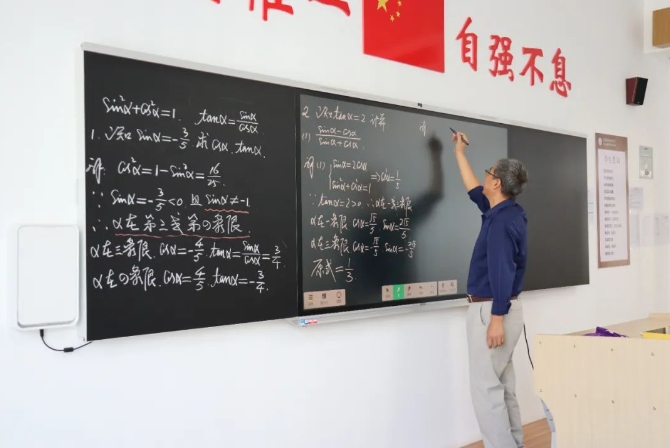 自强不息
sin²α+cos²α=1. tanα=sinα/cosα
1. 已知sinα=-3/5 求cosα, tanα.
解: cos²α=1-sin²α=16/25.
∵ sinα=-3/5<0 且 sinα≠-1
∴ α在第三或第四象限.
α在三象限 cosα=-4/5 tanα=sinα/cosα=3/4.
α在四象限 cosα=4/5 tanα=-3/4.
2 已知tanα=2 计算
(1) (sinα-cosα)/(sinα+cosα)
解(1) {sinα=2cosα
sin²α+cos²α=1 ⇒ cos²α=1/5
∵ tanα=2>0 ∴α在一或三象限
α在一象限 cosα=√5/5 sinα=2√5/5
α在三象限 cosα=-√5/5 sinα=-2√5/5
原式=1/3